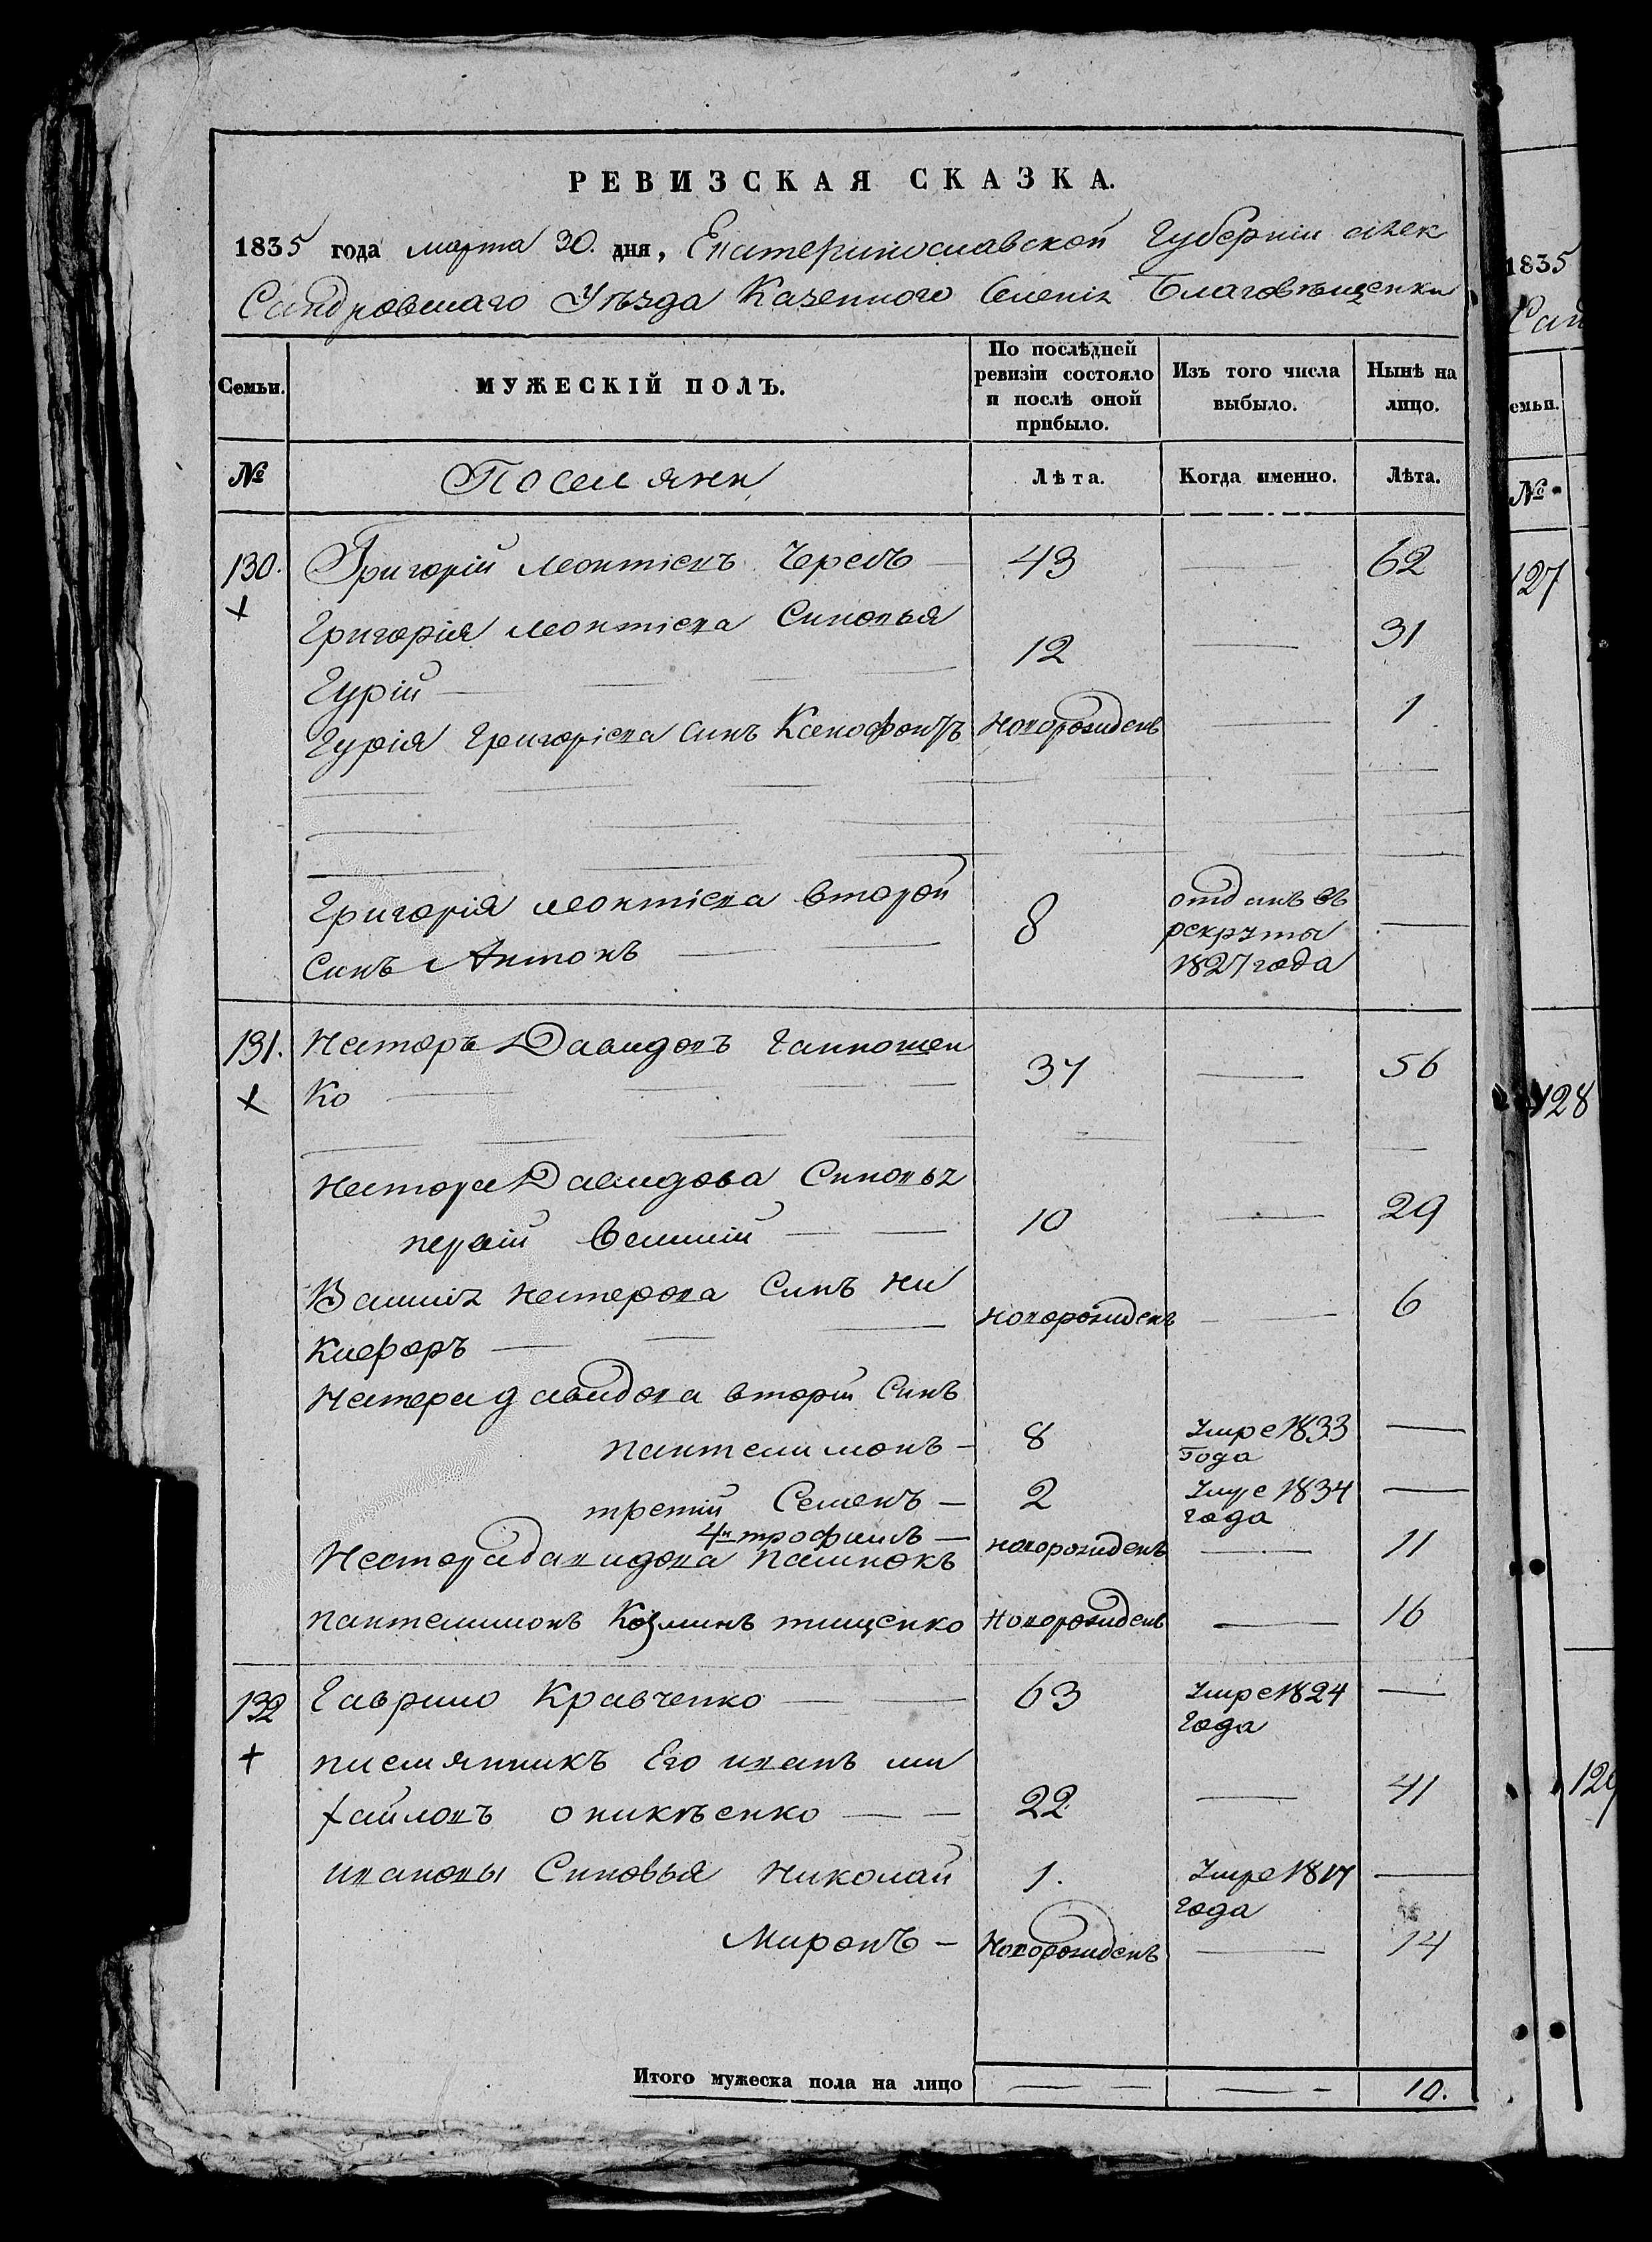 РЕВИЗСКАЯ СКАЗКА.
1835 года марта 30. дня, Екатеринославской Губерніи алек
Сандровшаго Уѣзда Казенного Селенія Благовѣщенки
Семьи.
МУЖЕСКІЙ ПОЛЪ.
По послѣдней ревизіи состояло и послѣ оной прибыло.
Изъ того числа выбыло.
Нынѣ на лицо.
№ Поселяни Лѣта. Когда именно. Лѣта.
130. Григорій леонтіевъ Черевъ — 43 — 62
+
Григорія леонтіева Синовья
Гурій — 12 — 31
Гурія Григоріева Синъ Ксенофонтъ Новорожденъ — 1
Григорія леонтіева второй
Синъ Антонъ — 8 отданъ въ рекруты 1827 года —
131. Несторъ Давидовъ
Ко — 37 — 56
+
Нестора Давидова Синовья
первій Василій — 10 — 29
Василія Нестерова Синъ Ни
Кифоръ — Новорожденъ — 6
Нестера давидова вторій Синъ
пантелимонъ — 8 Умре 1833 Года —
третій Семенъ — 2 Умре 1834 года —
4й трофимъ — новорожденъ — 11
Нестора давидова
пантелимонъ Козминъ тищенко Новорожденъ — 16
132 Гаврило Кравченко — 63 Умре 1824 Года —
+
племянникъ Его иванъ ми
хайловъ оникѣенко — 22 — 41
ивановы Синовья Николай 1. Умре 1817 года —
Миронъ — Новорожденъ — 14
Итого мужеска пола на лицо — — 10.
1835
Сан
емьи.
№
127
128
129